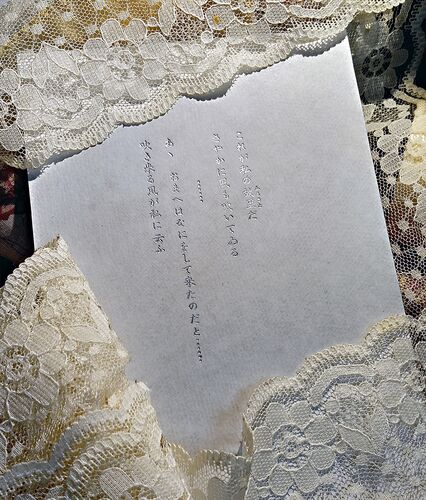 これが私の故里だ
ふるさと
さやかに風も吹いてゐる
……
あゝ　おまへはなにをして来たのだと……
吹き来る風が私に云ふ